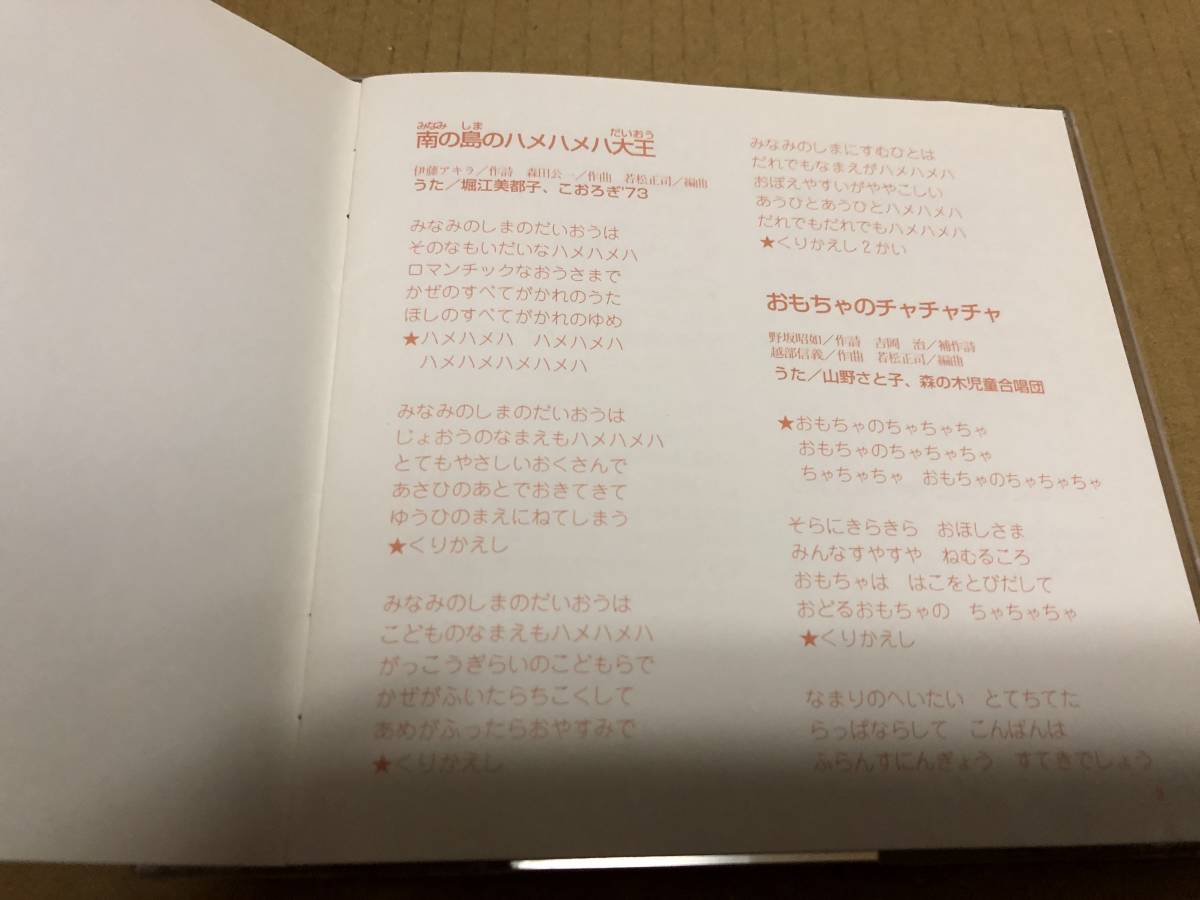 南の島のハメハメハ大王
みなみ しま だいおう
伊藤アキラ／作詩 森田公一／作曲 若松正司／編曲
うた／堀江美都子、こおろぎ'73
みなみのしまのだいおうは
そのなもいだいなハメハメハ
ロマンチックなおうさまで
かぜのすべてがかれのうた
ほしのすべてがかれのゆめ
★ハメハメハ ハメハメハ
ハメハメハメハメハ
みなみのしまのだいおうは
じょおうのなまえもハメハメハ
とてもやさしいおくさんで
あさひのあとでおきてきて
ゆうひのまえにねてしまう
★くりかえし
みなみのしまのだいおうは
こどものなまえもハメハメハ
がっこうぎらいのこどもらで
かぜがふいたらちこくして
あめがふったらおやすみで
★くりかえし
みなみのしまにすむひとは
だれでもなまえがハメハメハ
おぼえやすいがややこしい
あうひとあうひとハメハメハ
だれでもだれでもハメハメハ
★くりかえし2かい
おもちゃのチャチャチャ
野坂昭如／作詩 吉岡 治／補作詩
越部信義／作曲 若松正司／編曲
うた／山野さと子、森の木児童合唱団
★おもちゃのちゃちゃちゃ
おもちゃのちゃちゃちゃ
ちゃちゃちゃ おもちゃのちゃちゃちゃ
そらにきらきら おほしさま
みんなすやすや ねむるころ
おもちゃは はこをとびだして
おどるおもちゃの ちゃちゃちゃ
★くりかえし
なまりのへいたい とてちてた
らっぱならして こんばんは
ふらんすにんぎょう すてきでしょう